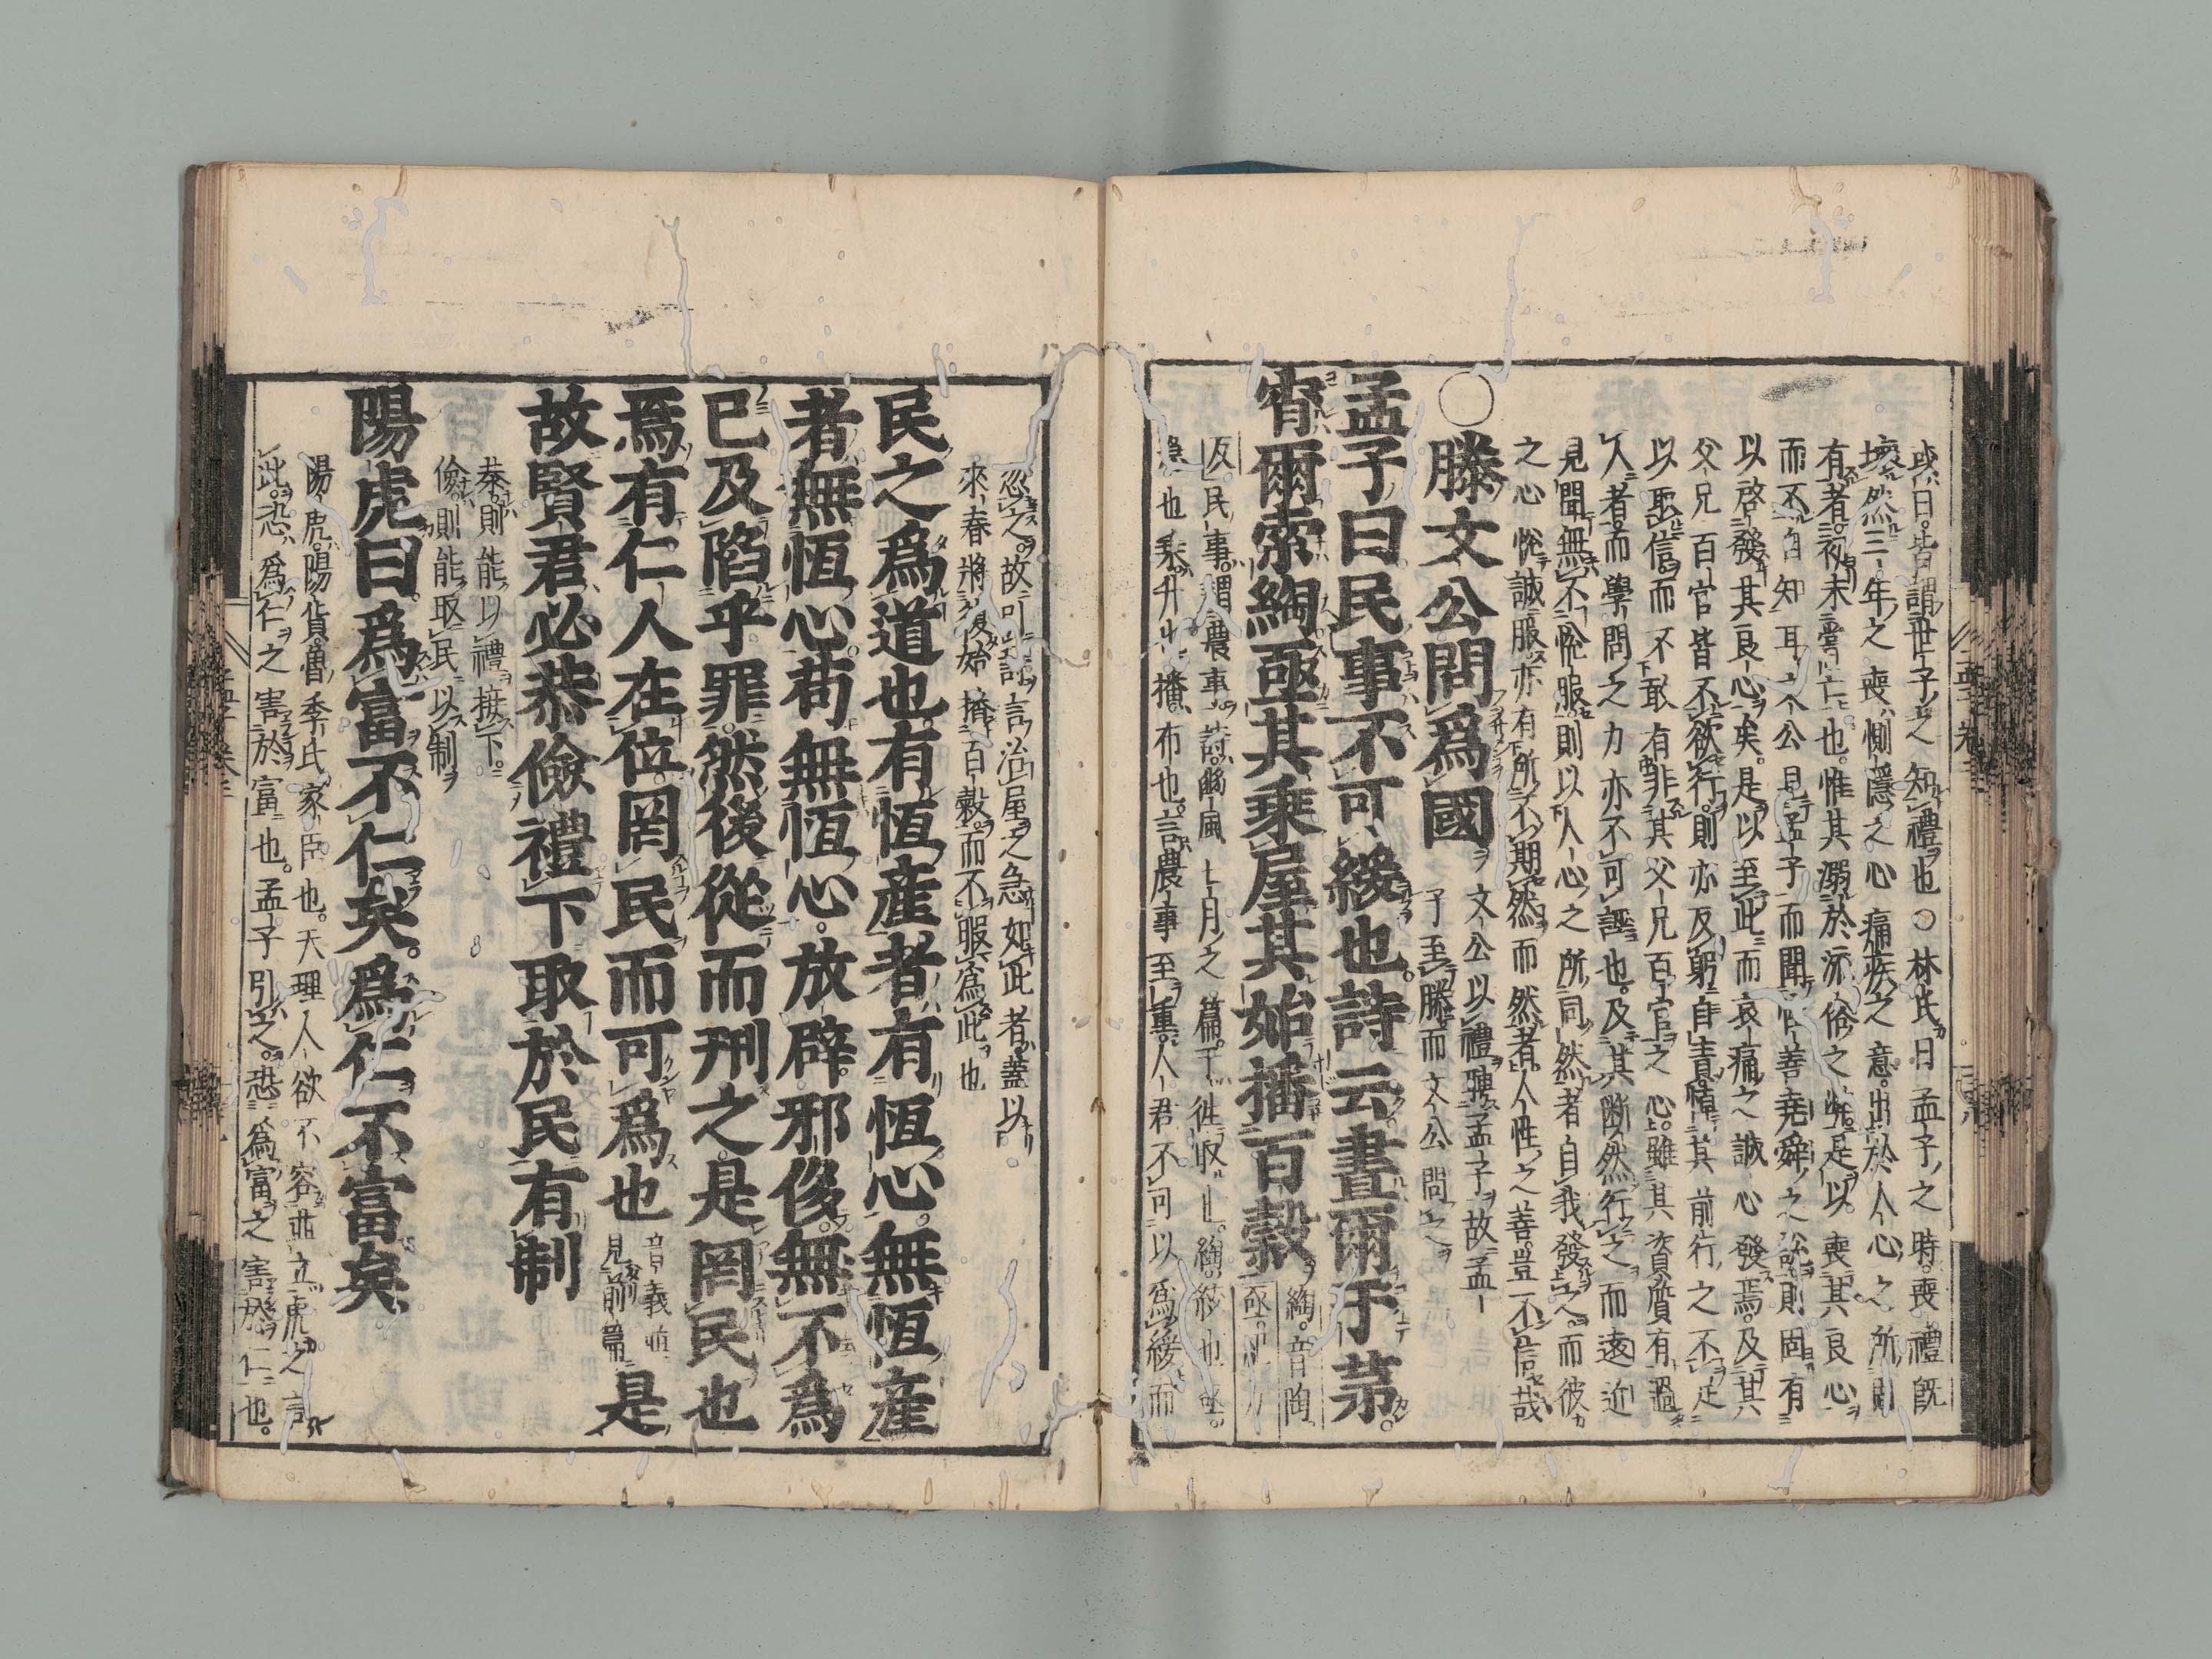 或曰皆謂世子之知禮也○林氏曰孟子之時喪禮既
壞然三年之喪惻隱之心痛疾之意出於人心之所固
有者初未嘗亡也惟其溺於流俗之弊是以喪其良心
而不自知耳文公見孟子而聞性善堯舜之說則固有
以啓發其良心矣是以至此而哀痛之誠心發焉及其
父兄百官皆不欲行則亦反躬自責悼其前行之不足
以取信而不敢有非其父兄百官之心雖其資質有過
人者而學問之力亦不可誣也及其斷然行之而遠近
見聞無不悅服則以人心之所同然者自我發之而彼
之心悅誠服亦有所不期然而然者人性之善豈不信哉
○滕文公問爲國
文公以禮聘孟子故孟
子至滕而文公問之
孟子曰民事不可緩也詩云晝爾于茅
宵爾索綯亟其乘屋其始播百穀
綯音陶
亟
反民事謂農事詩豳風七月之篇于往取也綯絞也亟
急也乘升也播布也言農事至重人君不可以爲緩而
忽之故引詩言治屋之急如此者蓋以
來春將復始播百穀而不暇爲此也
民之爲道也有恆產者有恆心無恆產
者無恆心苟無恆心放辟邪侈無不爲
已及陷乎罪然後從而刑之是罔民也
焉有仁人在位罔民而可爲也
音義
見前篇
是
故賢君必恭儉禮下取於民有制
恭則能以禮接下
儉則能取民以制
陽虎曰爲富不仁矣爲仁不富矣
陽虎陽貨魯季氏家臣也天理人欲不容並立虎之言
此恐爲仁之害於富也孟子引之恐爲富之害於仁也